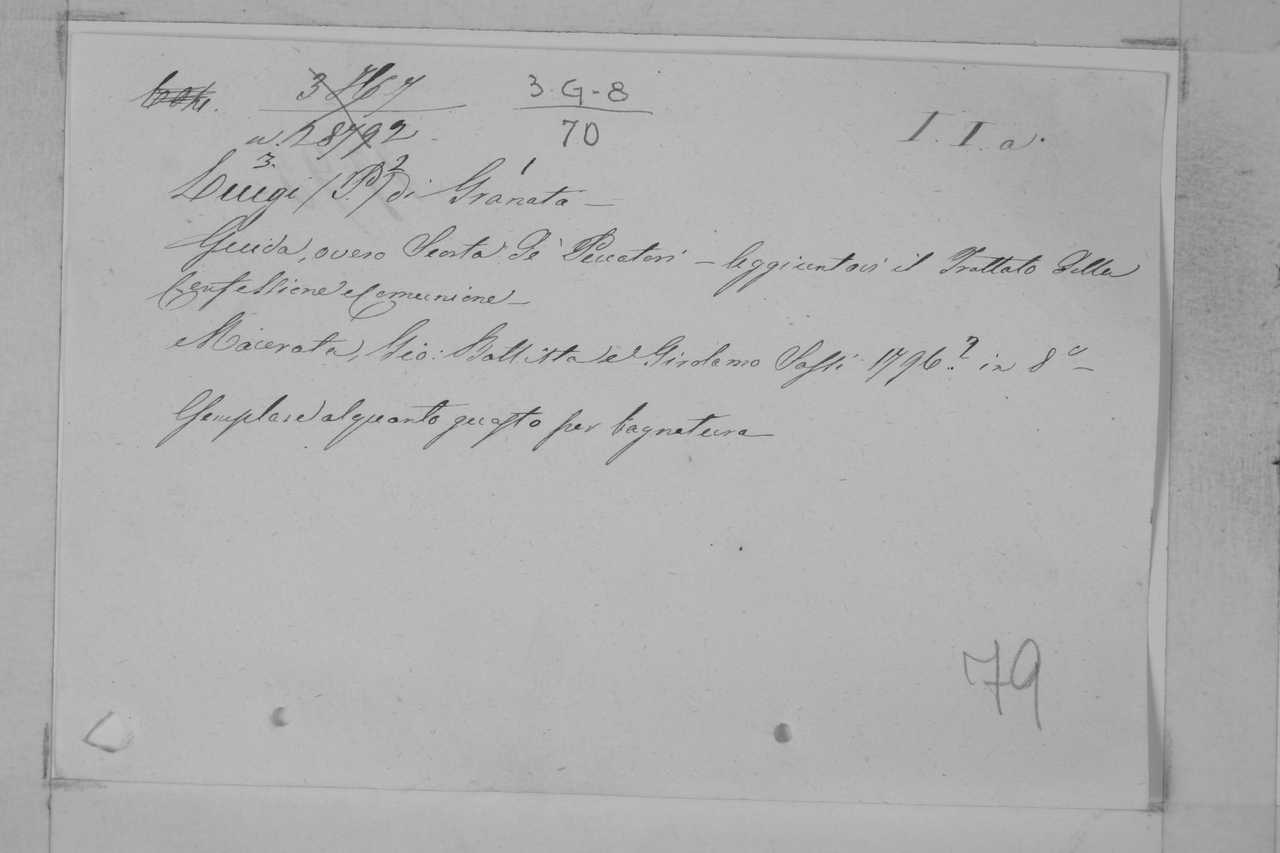 3 H 7 3. G - 8 I. I. a.
n. 28792 70
3. 2 1
Luigi (P.) di Granata —
Guida, overo Scorta de' Peccatori — Aggiuntovi il Trattato della
Confessione e Comunione —
Macerata, Gio: Battista e Girolamo Sassi 1796.? in 8° —
Esemplare alquanto guasto per bagnatura —
79